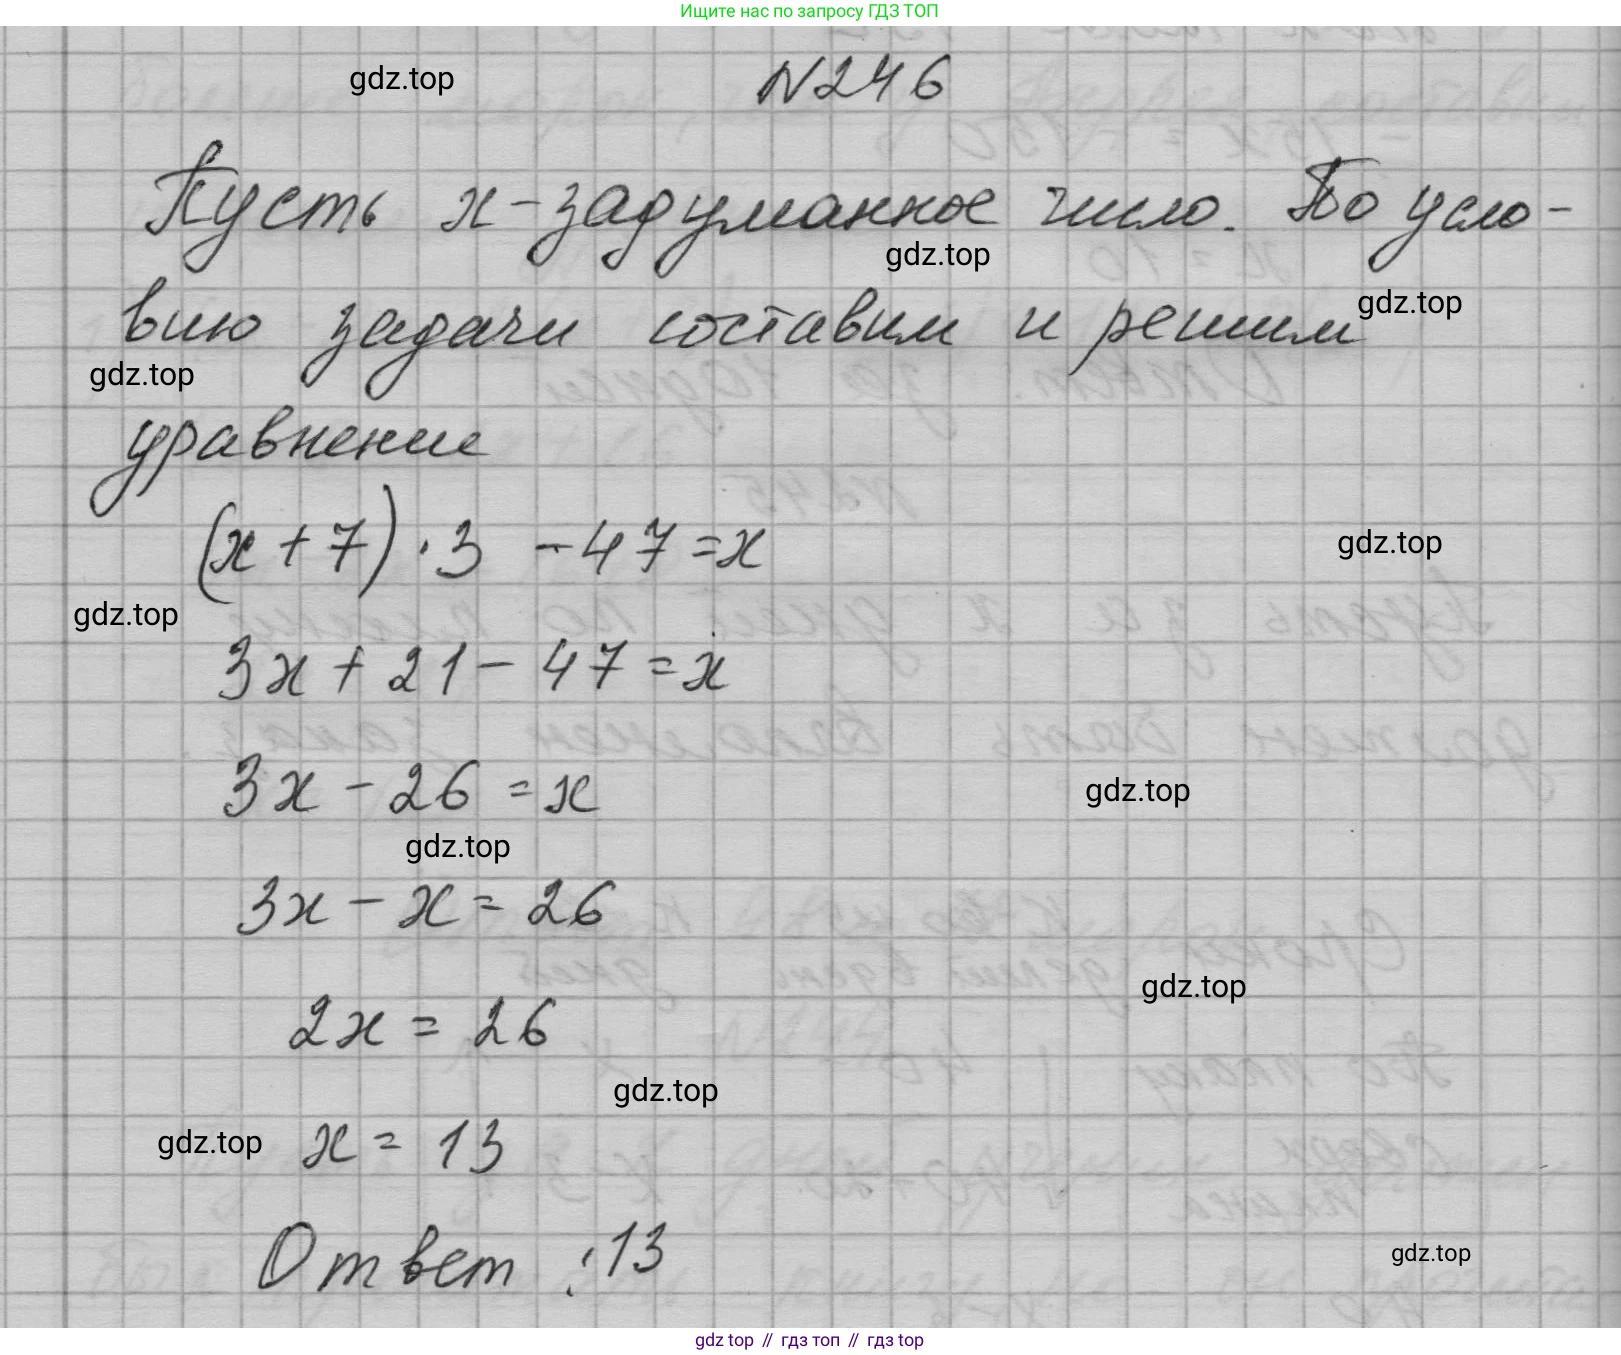 Ищите нас по запросу ГДЗ ТОП
gdz.top
N246
Пусть x - задуманное число. По усло-
gdz.top
вию задачи составим и решим
gdz.top
gdz.top
уравнение
(x + 7) · 3 - 47 = x
gdz.top
gdz.top
3x + 21 - 47 = x
3x - 26 = x
gdz.top
gdz.top
3x - x = 26
gdz.top
2x = 26
gdz.top
gdz.top
x = 13
Ответ : 13
gdz.top
gdz top // гдз топ // гдз top